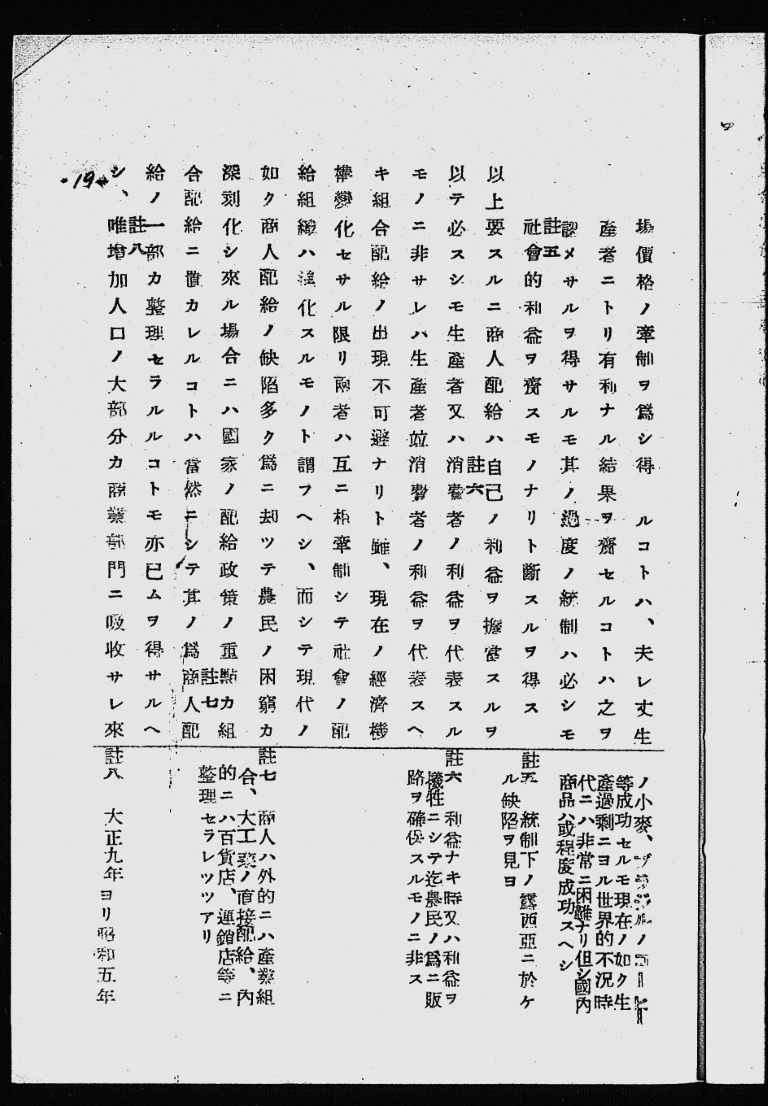 場價格ノ牽制ヲ爲シ得　ルコトハ、夫レ丈生
産者ニトリ有利ナル結果ヲ齎セルコトハ之ヲ
認メサルヲ得サルモ其ノ過度ノ統制ハ必シモ
註五
社會的利益ヲ齎スモノナリト斷スルヲ得ス
以上要スルニ商人配給ハ自己ノ利益ヲ擔當スルヲ
註六
以テ必スシモ生產者又ハ消費者ノ利益ヲ代表スル
モノニ非サレハ生產者竝消費者ノ利益ヲ代表スヘ
キ組合配給ノ出現不可避ナリト雖、現在ノ經濟機
構變化セサル限リ兩者ハ互ニ相牽制シテ社會ノ配
給組織ハ進化スルモノト謂フヘシ、而シテ現代ノ
如ク商人配給ノ缺陷多ク爲ニ却ツテ農民ノ困窮カ
深刻化シ來ル場合ニハ國家ノ配給政策ノ重點カ組
註七
合配給ニ置カレルコトハ當然ニシテ其ノ爲商人配
給ノ一部カ整理セラルルコトモ亦已ムヲ得サルヘ
註八
シ、唯增加人口ノ大部分カ商業部門ニ吸收サレ來
ノ小麥、ブラジルノコーヒー
等成功セルモ現在ノ如ク生
產過剩ニヨル世界的不況時
代ニハ非常ニ困難ナリ但シ國內
商品ハ或程度成功スヘシ
註五　統制下ノ露西亞ニ於ケ
ル缺陷ヲ見ヨ
註六　利益ナキ時又ハ利益ヲ
犧牲ニシテ迄農民ノ爲ニ販
路ヲ確保スルモノニ非ス
註七　商人ハ外的ニハ產業組
合、大工業ノ直接配給、內
的ニハ百貨店、連鎖店等ニ
整理セラレツツアリ
註八　大正九年ヨリ昭和五年
19